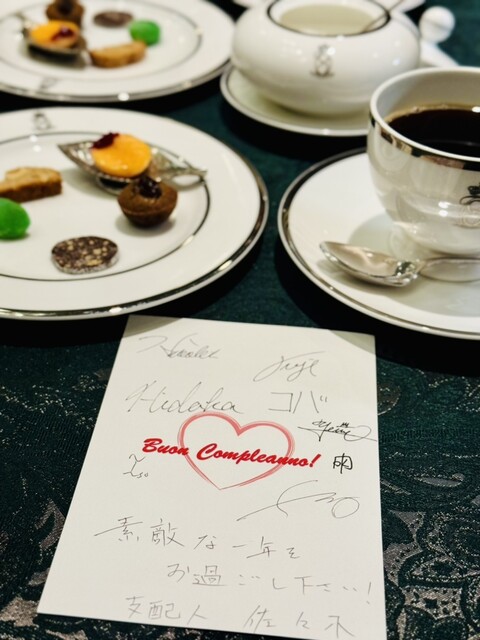 Hidaka コバ
Buon Compleanno!
Iso
素敵な一年を
お過ごし下さい!
支配人 佐々木